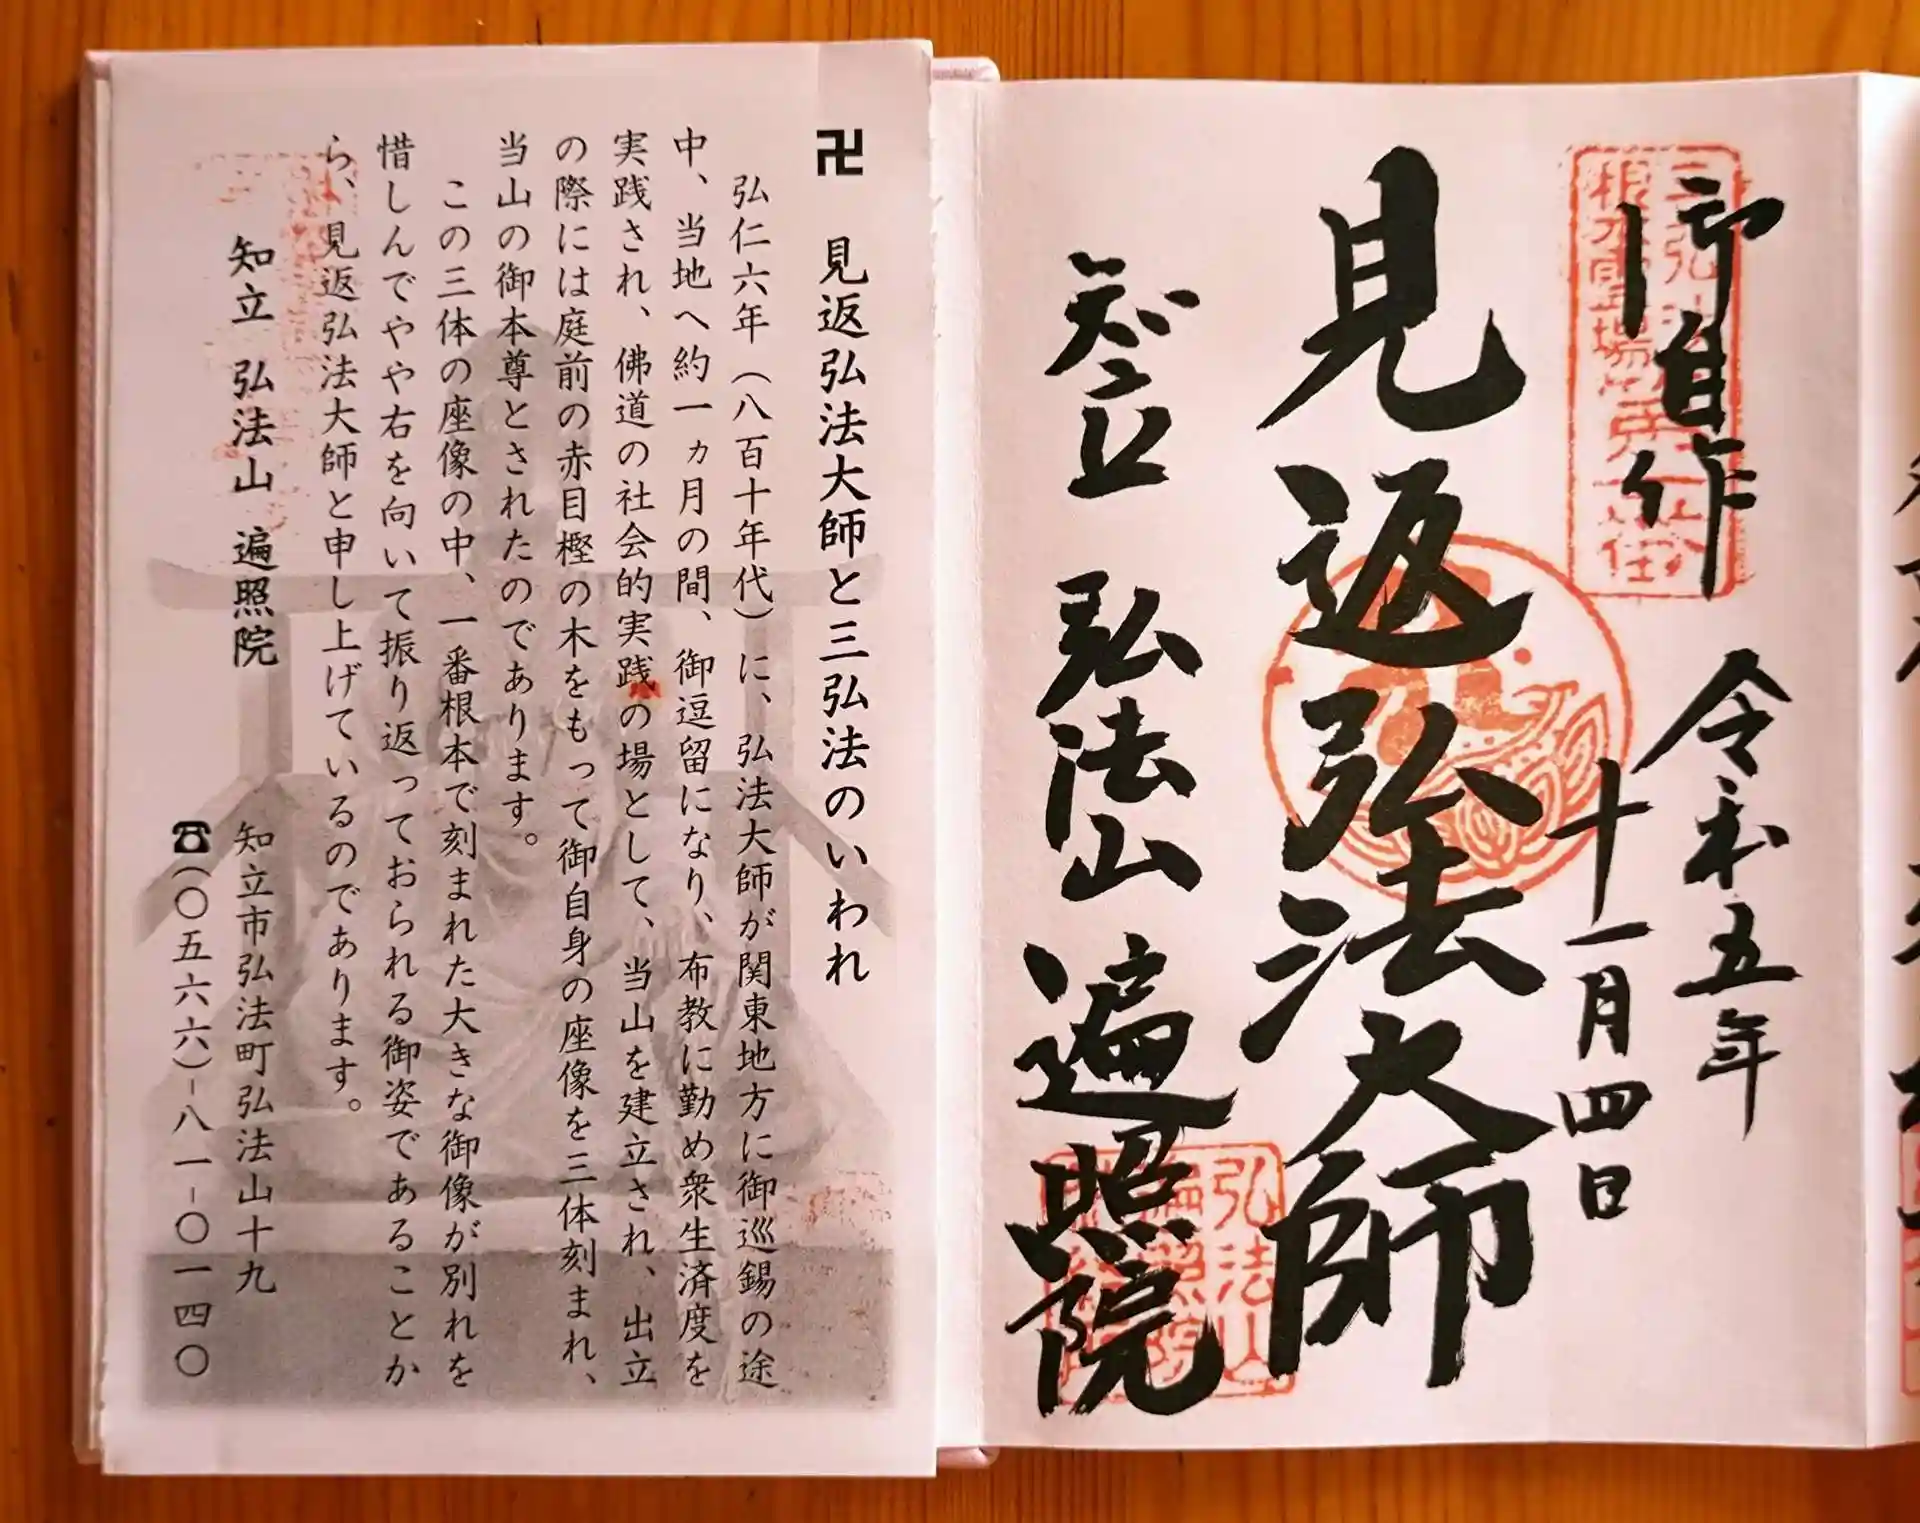 御自作
令和五年
十一月四日
見返弘法大師
知立 弘法山 遍照院
弘法山
卍 見返弘法大師と三弘法のいわれ
弘仁六年(八百十年代)に、弘法大師が関東地方に御巡錫の途
中、当地へ約一ヵ月の間、御逗留になり、布教に勤め衆生済度を
実践され、佛道の社会的実践の場として、当山を建立され、出立
の際には庭前の赤目樫の木をもって御自身の座像を三体刻まれ、
当山の御本尊とされたのであります。
この三体の座像の中、一番根本で刻まれた大きな御像が別れを
惜しんでやや右を向いて振り返っておられる御姿であることか
ら、見返弘法大師と申し上げているのであります。
知立 弘法山 遍照院
知立市弘法町弘法山十九
☎(〇五六六)-八一-〇一四〇